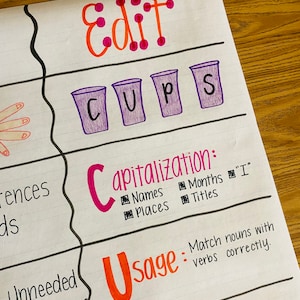 Edit
CUPS
Capitalization:
Names Months "I"
Places Titles
Usage: Match nouns with
verbs correctly.
ds
Unneeded